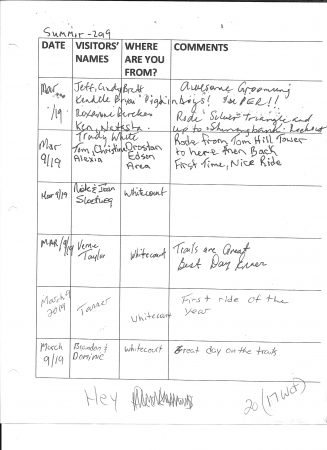 Summer-299
DATE VISITORS' NAMES WHERE ARE YOU FROM? COMMENTS
Mar /19 Jeff, Cindy Brett Awesome Grooming
Kendelle Brian boys! SUPER!!
Roxanne Rode "Silver" Triangle and
Ken, up to
Trudy White
Mar 9/19 Tom, Christina Drostan Rode from Tom Hill Tower
Alexia Edson to here then Back
Area First Time, Nice Ride
Mar 9/19 Rick & Joan Whitecourt
MAR/9/19 Verne Taylor Whitecourt Trails are Great
Best Day Ever
March 9 2019 Tanner Whitecourt First ride of the
year
March 9/19 Brandon & Dominic Whitecourt Great day on the trails
Hey
20 (MWCF)